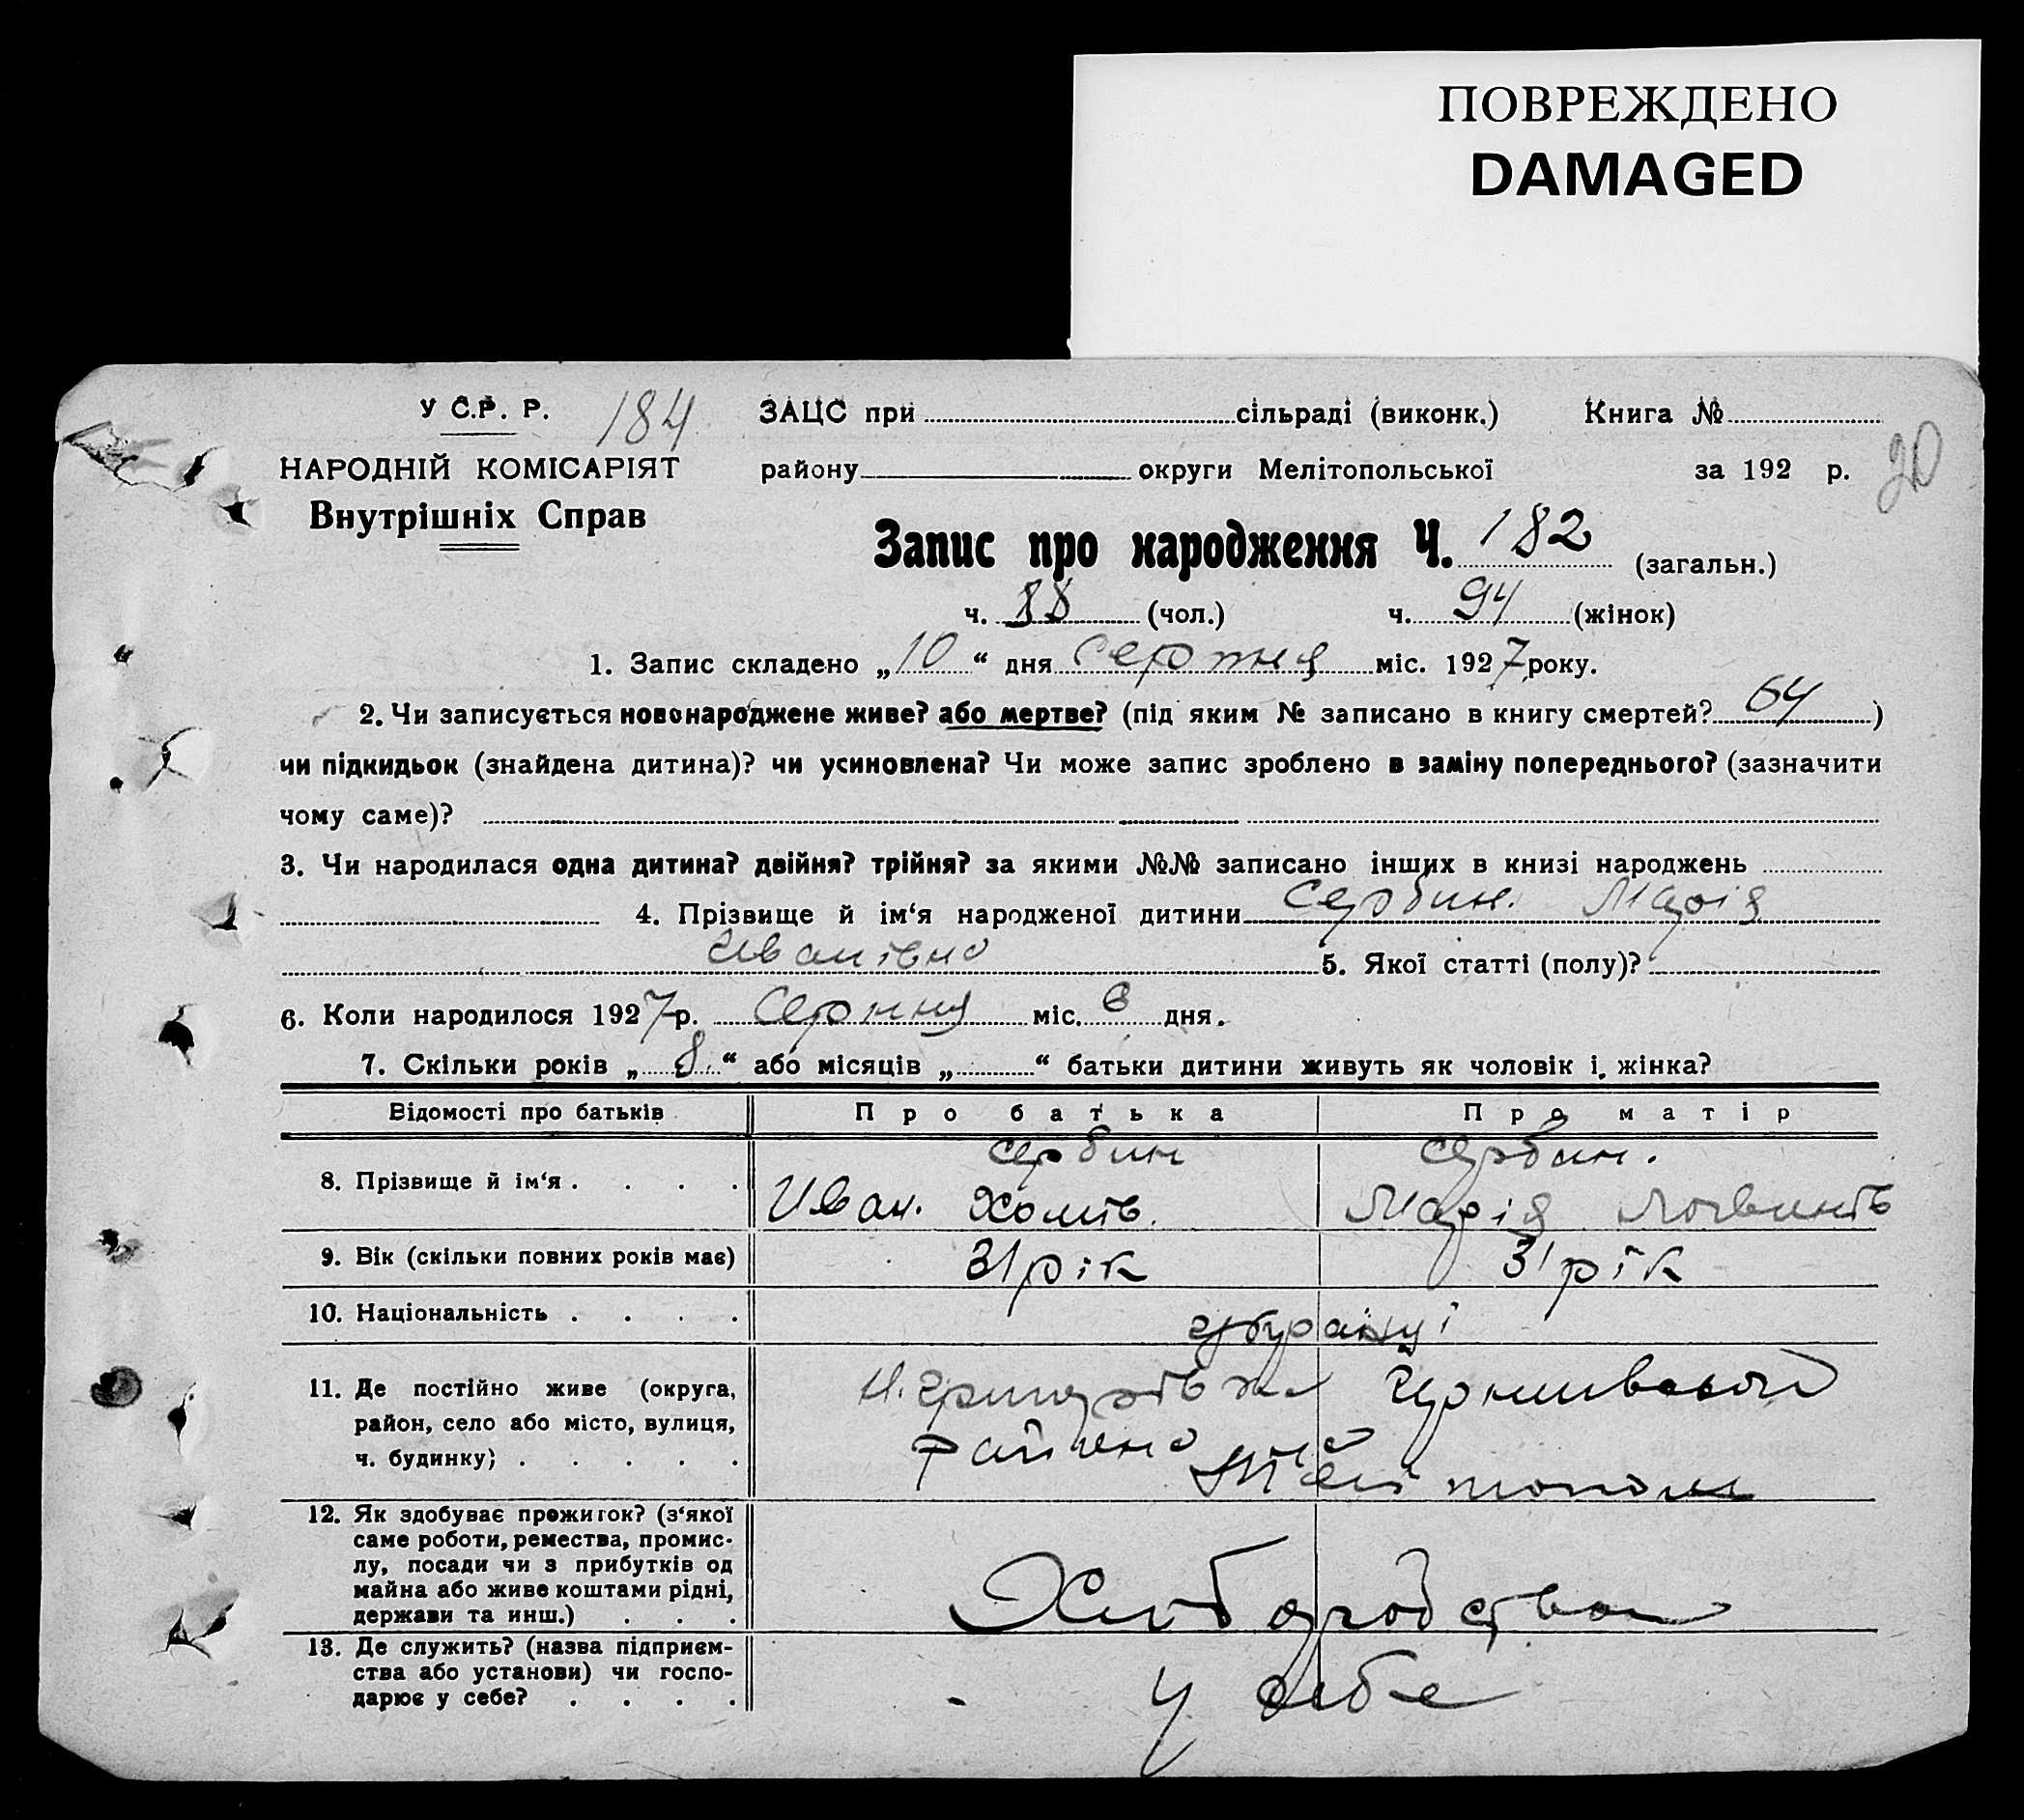 ПОВРЕЖДЕНО
DAMAGED
У С.Р. Р. 184 ЗАЦС при сільраді (виконк.) Книга №
НАРОДНІЙ КОМІСАРІЯТ району округи Мелітопольської за 192 р. 20
Внутрішніх Справ
Запис про народження Ч. 182 (загальн.)
ч. 88 (чол.) ч. 94 (жінок)
1. Запис складено „10“ дня серпня міс. 1927 року.
2. Чи записується новонароджене живе? або мертве? (під яким № записано в книгу смертей? 64)
чи підкидьок (знайдена дитина)? чи усиновлена? Чи може запис зроблено в заміну попереднього? (зазначити
чому саме)?
3. Чи народилася одна дитина? двійня? трійня? за якими №№ записано інших в книзі народжень
4. Прізвище й ім‘я народженої дитини Сербин. Марія
Иванівна 5. Якої статті (полу)?
6. Коли народилося 1927 р. Серпня міс. 6 дня.
7. Скільки років „8.“ або місяців „ “ батьки дитини живуть як чоловік і жінка?
Відомості про батьків Про батька Про матір
Сербин Сербин.
8. Прізвище й ім‘я . . . . Иван. Хомів. Марія
9. Вік (скільки повних років має) 31 рік 31 рік
10. Національність . . . .
українці
11. Де постійно живе (округа,
район, село або місто, вулиця,
ч. будинку; . . . . . района
12. Як здобуває прожиток? (з‘якої
саме роботи, ремества, промис-
лу, посади чи з прибутків од
майна або живе коштами рідні,
держави та инш.) . . .
13. Де служить? (назва підприєм-
ства або установи) чи госпо-
дарює у себе? . . . . - у себе